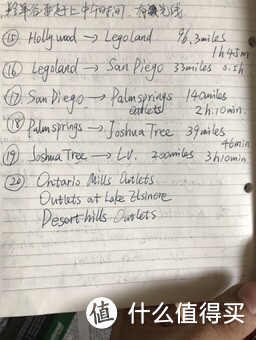 ⑮ Hollywood → Legoland 96.3miles
1h45m
⑯ Legoland → San Diego 33miles 0.5h
⑰ San Diego → Palmsprings 140miles
outlets 2h10min.
⑱ Palmsprings → Joshua Tree 39miles
46min
⑲ Joshua Tree → L.V. 200miles 3h10min
⑳ Ontario Mills Outlets
Outlets at Lake Elsinore
Deserthills Outlets
值 什么值得买